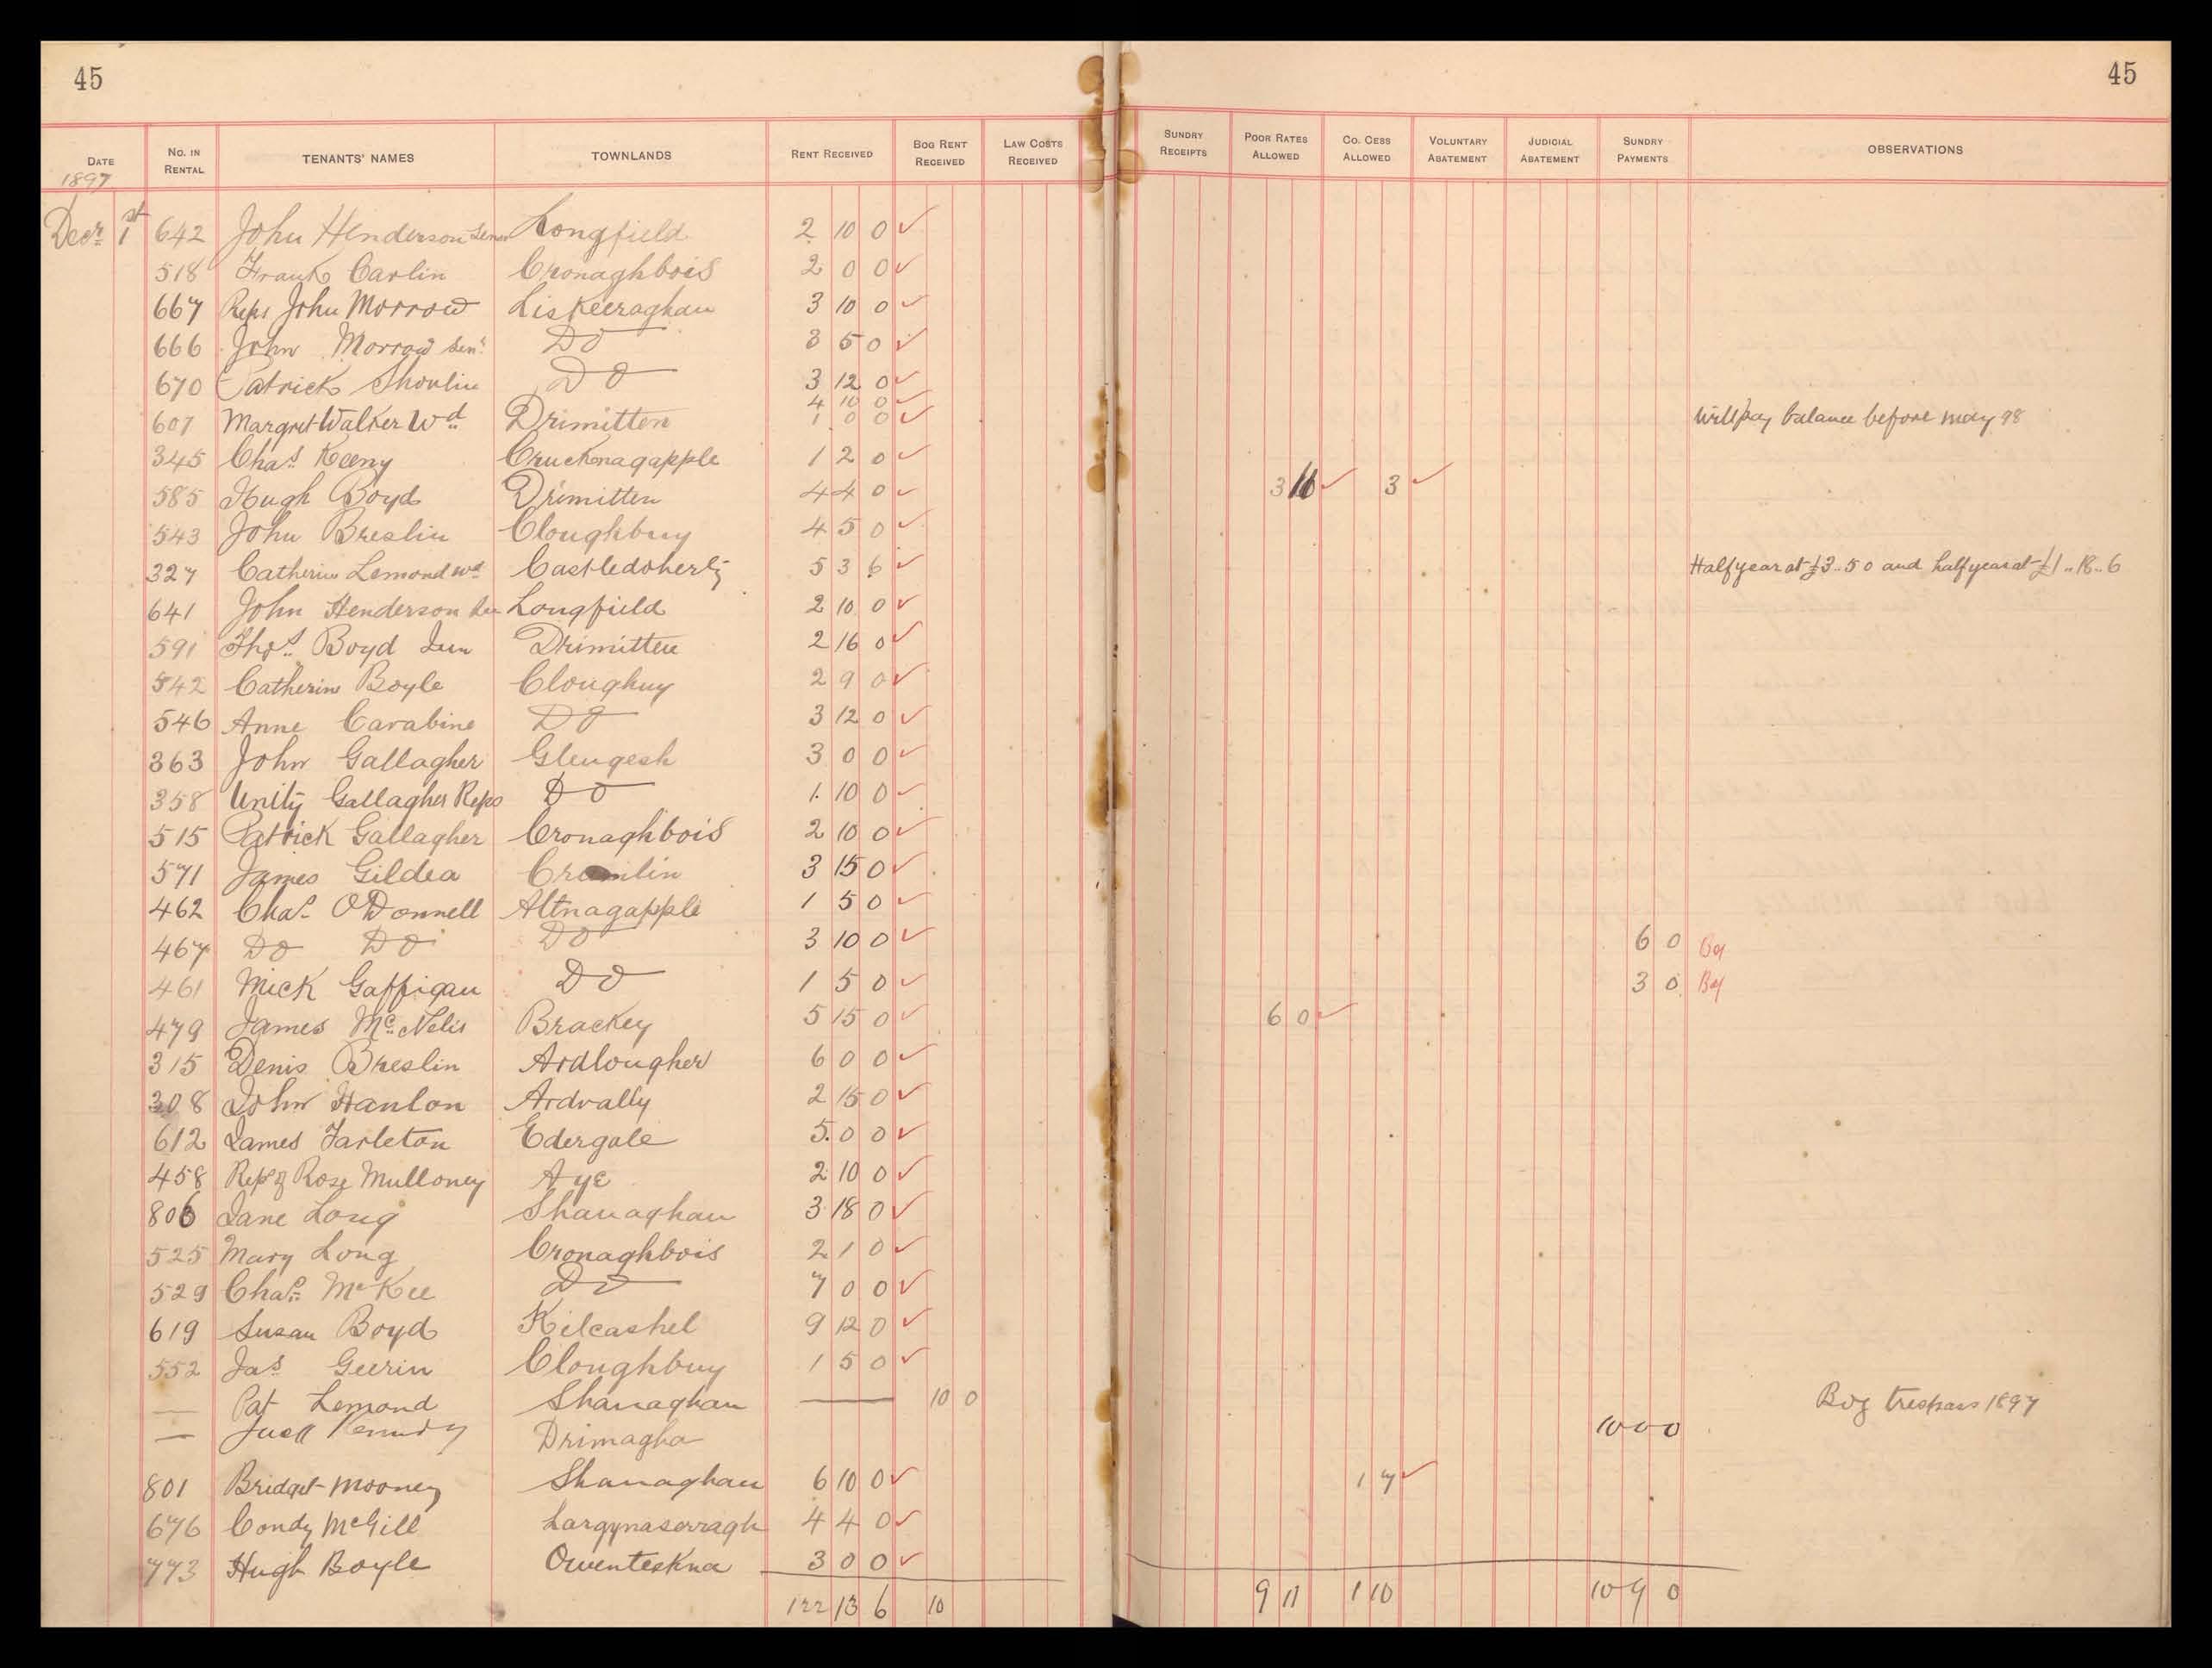 45 45
DATE 1897 NO. IN RENTAL TENANTS' NAMES TOWNLANDS RENT RECEIVED BOG RENT RECEIVED LAW COSTS RECEIVED SUNDRY RECEIPTS POOR RATES ALLOWED CO. CESS ALLOWED VOLUNTARY ABATEMENT JUDICIAL ABATEMENT SUNDRY PAYMENTS OBSERVATIONS
Decr 1st 642 John Henderson Senr Longfield 2 10 0 ✓
518 Frank Carlin Cronaghbois 2 0 0 ✓
667 Reps John Morrow Liskeeraghan 3 10 0 ✓
666 John Morrow Senr Do 3 5 0 ✓
670 Patrick Shovlin Do 3 12 0 ✓
4 10 0 ✓
607 Margret Walker Wd Drimitten 1 0 0 ✓ Will pay balance before may 98
345 Chas Keeny Cruckenagapple 1 2 0 ✓
585 Hugh Boyd Drimitten 4 4 0 ✓ 3 11 ✓ 3 ✓
543 John Breslin Cloughbuy 4 5 0 ✓
327 Catherine Lemond Wd Castledoherty 5 3 6 ✓ Half year at £3..5 0 and half year at £1..18..6
641 John Henderson Longfield 2 10 0 ✓
591 Thos Boyd Jun Drimitten 2 16 0 ✓
542 Catherine Boyle Cloughuy 2 9 0 ✓
546 Anne Carabine Do 3 12 0 ✓
363 John Gallagher Glengesh 3 0 0 ✓
358 Unity Gallagher Reps Do 1 10 0 ✓
515 Patrick Gallagher Cronaghbois 2 10 0 ✓
571 James Gildea Cromlin 3 15 0 ✓
462 Chas O'Donnell Altnagapple 1 5 0 ✓
467 Do Do Do 3 10 0 ✓ 6 0 Bog
461 Mick Gaffigan Do 1 5 0 ✓ 3 0 Bog
479 James McNelis Brackey 5 15 0 ✓ 6 0 ✓
315 Denis Breslin Ardlougher 6 0 0 ✓
308 John Hanlon Ardvally 2 15 0 ✓
612 James Tarleton Edergole 5 0 0 ✓
458 Reps of Rose Mulloney Aye 2 10 0 ✓
806 Jane Long Shanaghan 3 18 0 ✓
525 Mary Long Cronaghbois 2 1 0 ✓
529 Chas McKee Do 7 0 0 ✓
619 Susan Boyd Kilcashel 9 12 0 ✓
552 Jas Geerin Cloughbuy 1 5 0 ✓
— Pat Lemond Shanaghan — 10 0 Bog trespass 1897
— Drimagha 10 0 0
801 Bridget Mooney Shanaghan 6 10 0 ✓ 1 7 ✓
676 Condy McGill Largynaserragh 4 4 0 ✓
773 Hugh Boyle Owenteskna 3 0 0 ✓
122 13 6 10 9 11 1 10 10 9 0